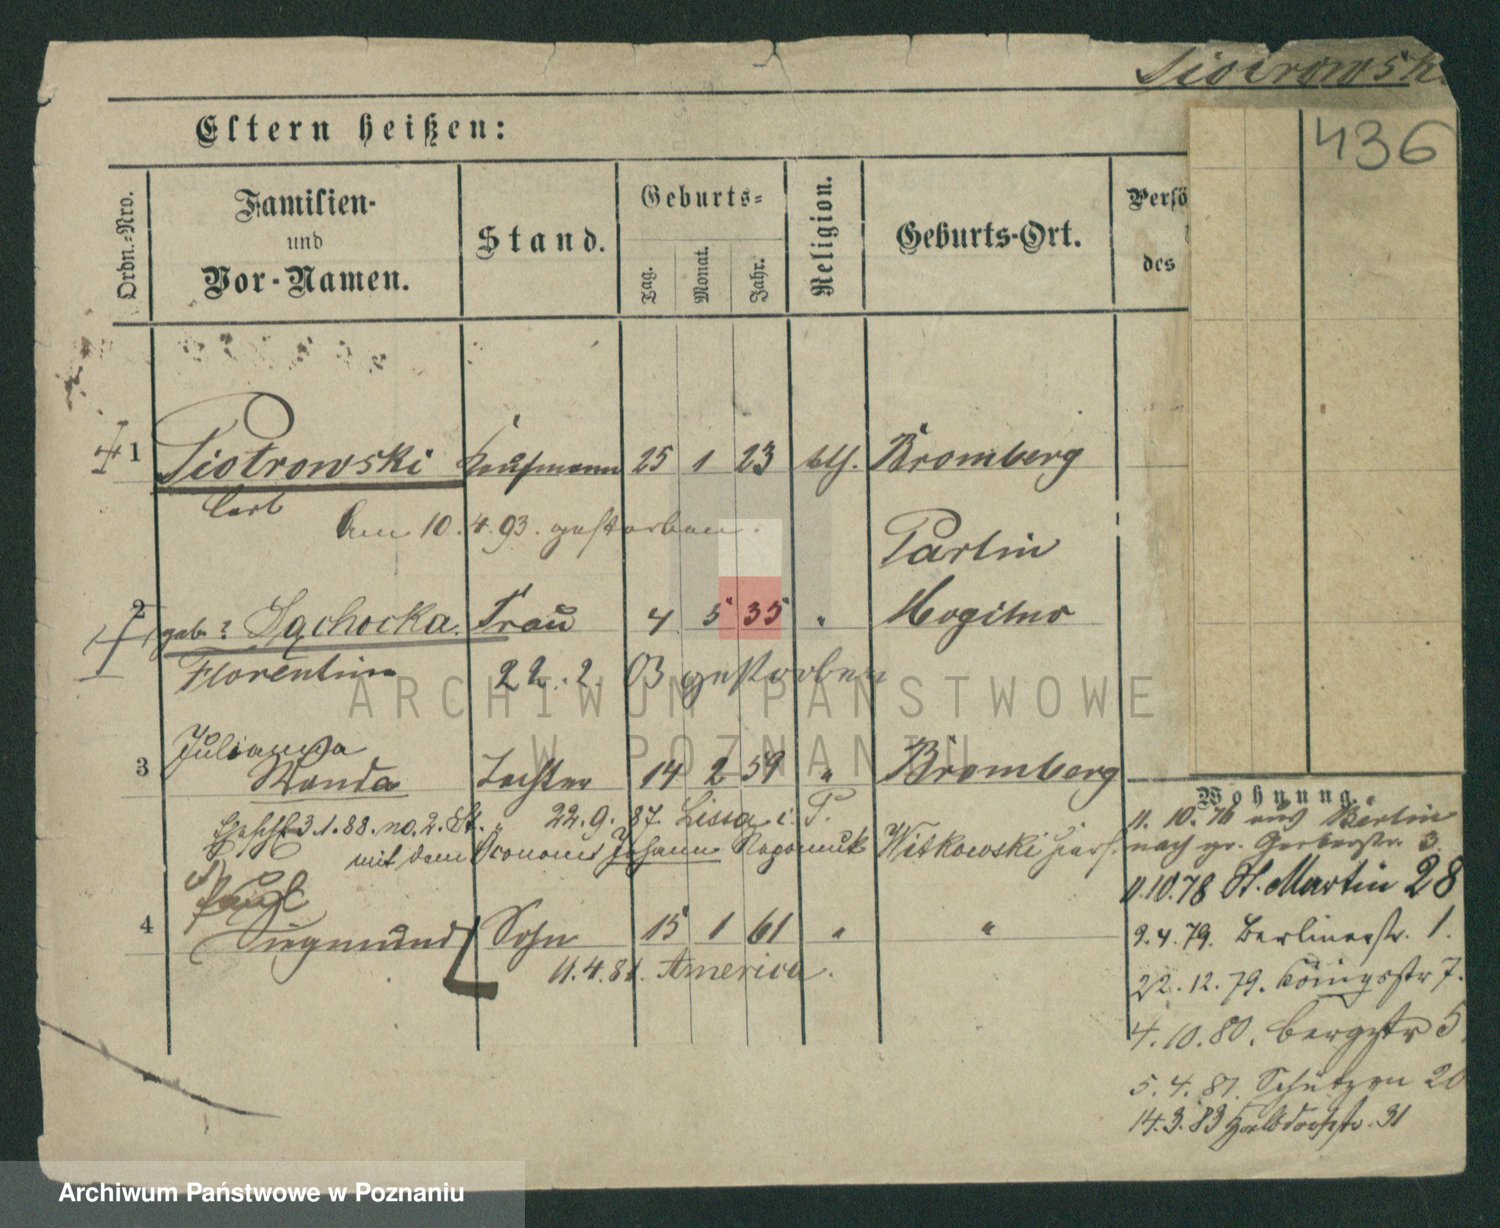 Piotrowski
436
Eltern heißen:
Ordn.=Nro.
Familien-
und
Vor-Namen.
Stand.
Geburts=
Tag.
Monat.
Jahr.
Religion.
Geburts-Ort.
Persö
des
1 Piotrowski Kaufmann 25 1 23 kth. Bromberg
Carl
Am 10.4.93. gestorben.
Parlin
2 geb. Sąchocka Frau 4 5 35 " Mogilno
Florentine 22.2.03 gestorben
Julianna
3 Wanda Tochter 14 2 59 " Bromberg
3.1.88. no. 2. St. 22.9.87. Lissa i. P.
mit dem Oconom Johann Nepomuk Witkowski
Paul
4 Siegmund Sohn 15 1 61 " "
11.4.81. America.
Wohnung.
11.10.76 aus Berlin
nach gr. Gerberstr. 3.
11.10.78 St. Martin 28
2.4.79. Berlinerstr. 1.
22.12.79. Königsstr 7.
4.10.80. Bergstr 5.
5.4.81. Schützen 20
14.3.83 Halbdorfstr. 31
ARCHIWUM PAŃSTWOWE
W POZNANIU
Archiwum Państwowe w Poznaniu